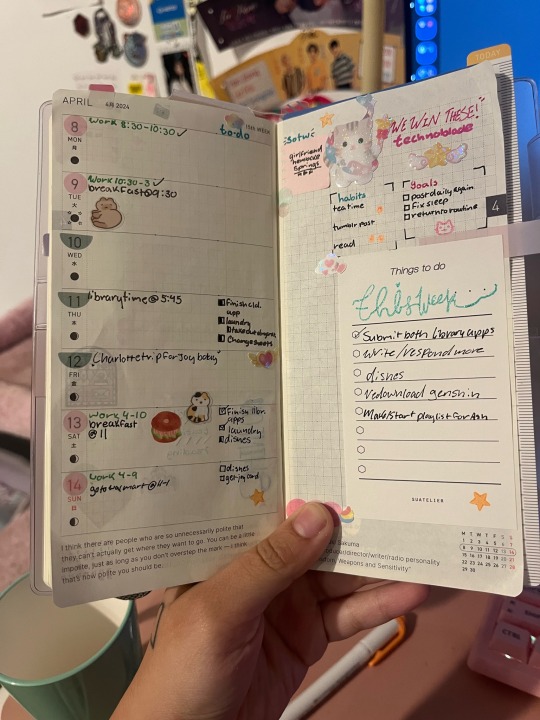 APRIL 4月 2024
15TH WEEK
to-do
8 Work 8:30-10:30 ✓
MON
月
9 Work 10:30-3 ✓
TUE breakfast@9:30
火
10
WED
水
11 library time @ 5:45
THU
木
laundry
Change sheets
12 "Charlotte trip for Joy baby"
FRI
金
13 Work 4-10
SAT breakfast
土 @ 11
Finish libr.
apps
laundry
dishes
14 Work 4-9
SUN go to walmart @
日
dishes
get joy card
I think there are people who are so unnecessarily polite that
they can't actually get where they want to go. You can be a little
impolite, just as long as you don't overstep the mark — I think
that's how polite you should be.
TODAY
sotw:
girlfriend
"WE WIN THESE!"
technoblade
habits
tea time
tumblr post
read
goals
post daily again
fix sleep
return to routine
4
Things to do
this week
Submit both library apps
Write / respond more
dishes
redownload genshin
Make/start playlist for Ash
SUATELIER
Sakuma
director/writer/radio personality
Weapons and Sensitivity"
M T W T F S S
1 2 3 4 5 6 7
8 9 10 11 12 13 14
15 16 17 18 19 20 21
22 23 24 25 26 27 28
29 30
CTRL